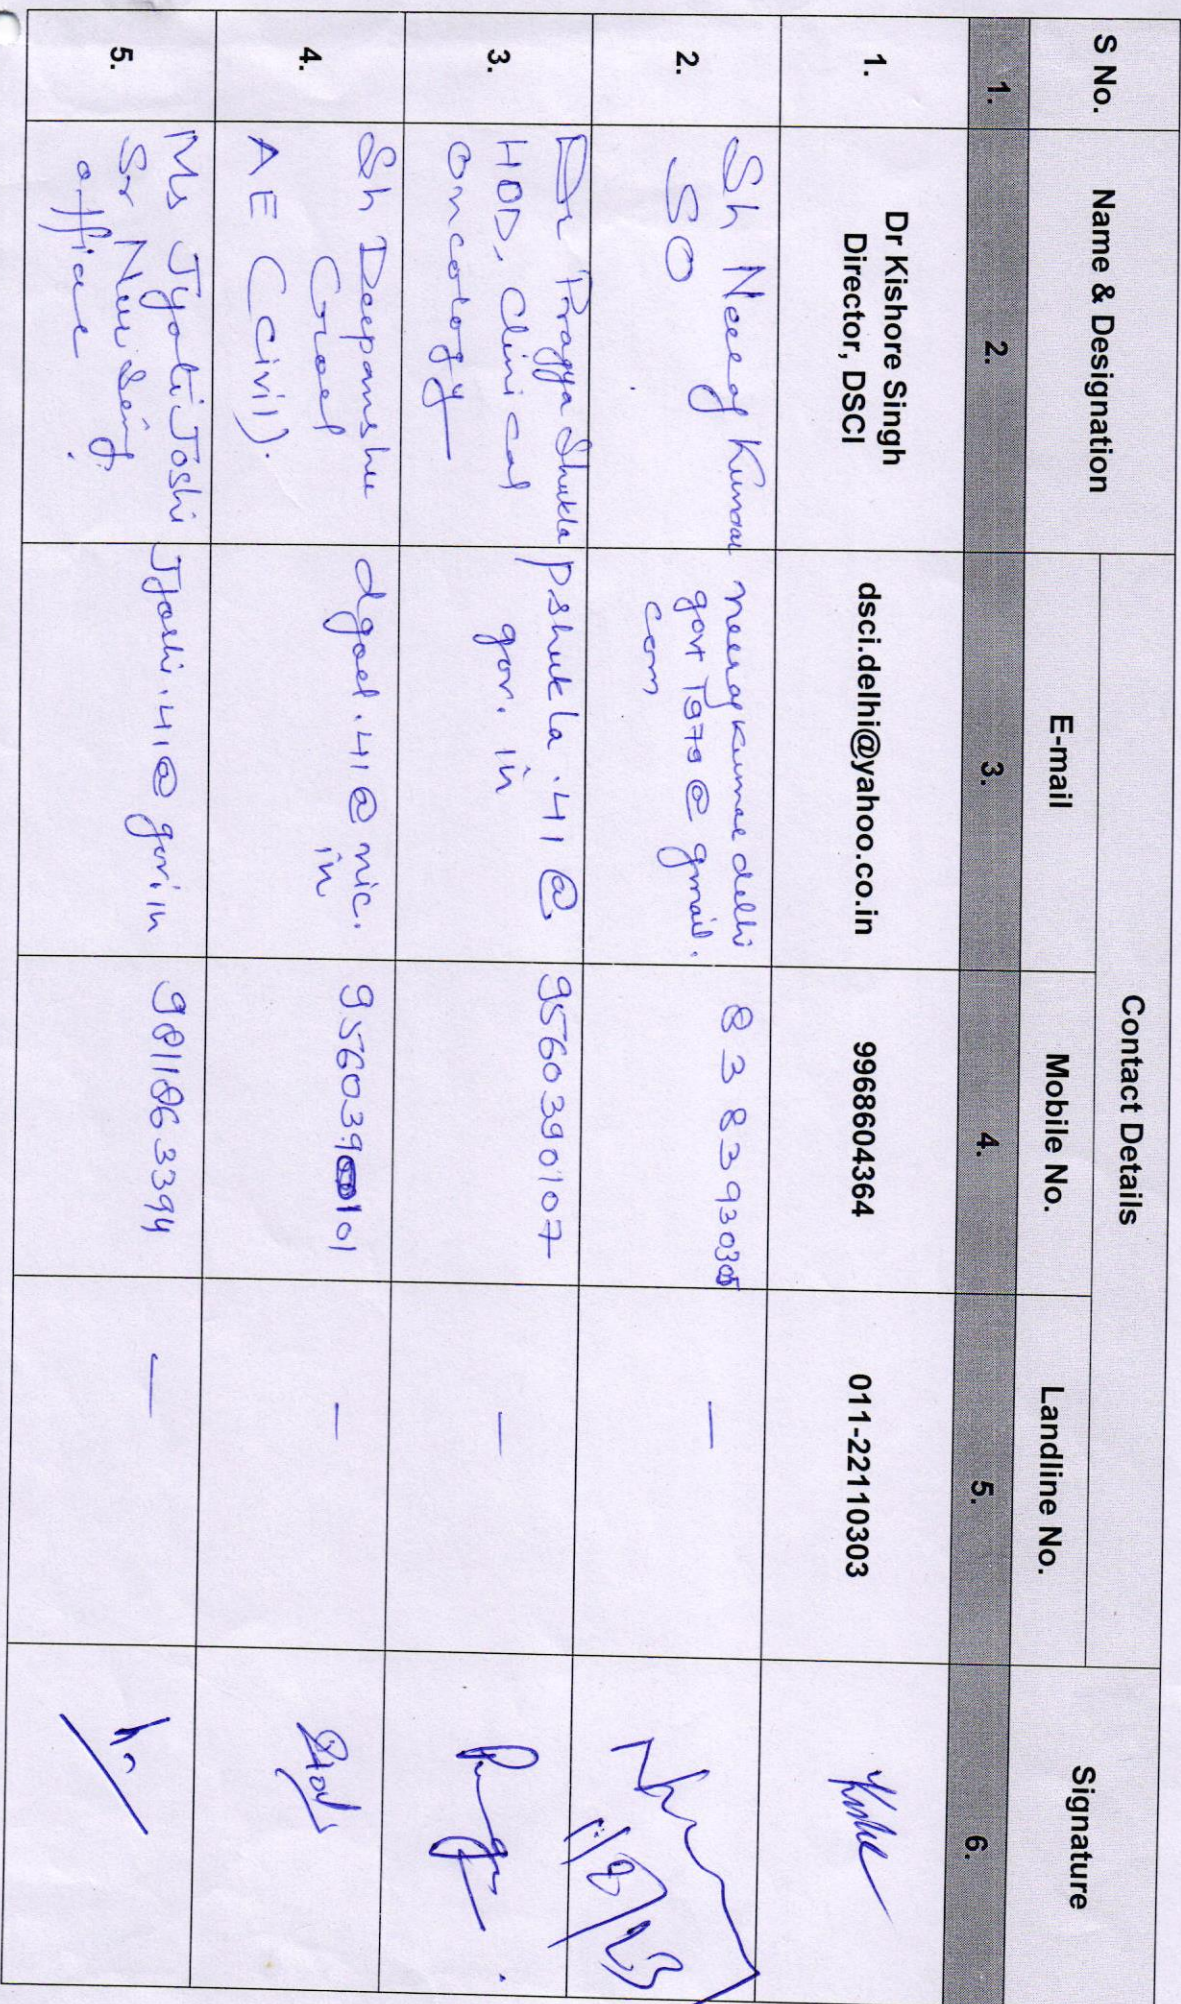 S No.
Name & Designation
Contact Details
Signature
E-mail
Mobile No.
Landline No.
1. 2. 3. 4. 5. 6.
1.
Dr Kishore Singh
Director, DSCI
dsci.delhi@yahoo.co.in
9968604364
011-22110303
2.
Sh Neeraj Kumar
SO
neerajkumar delhi
govt 1979@gmail.
com
8383930305
—
11/8/23
3.
Dr Pragya Shukla
HOD, Clinical
Oncology
pshukla.41@
gov.in
9560390107
—
4.
Sh Deepanshu
Goel
AE (Civil).
dgoel.41@nic.
in
9560390101
—
5.
Ms Jyoti Joshi
Sr Nursing
officer
Jjoshi.41@gov.in
9811863394
—